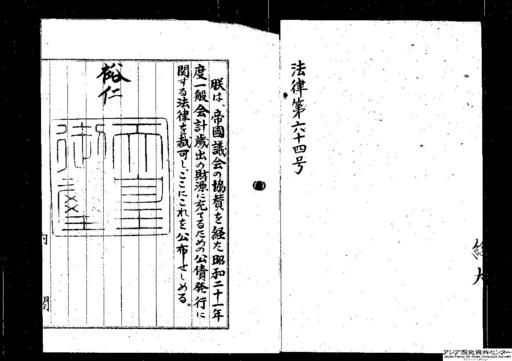 法律第六十四号
朕は、帝國議会の協賛を経た昭和二十一年
度一般会計歳出の財源に充てるための公債発行に
関する法律を裁可し、ここにこれを公布せしめる。
裕仁
天皇
御璽
内閣
アジア歴史資料センター